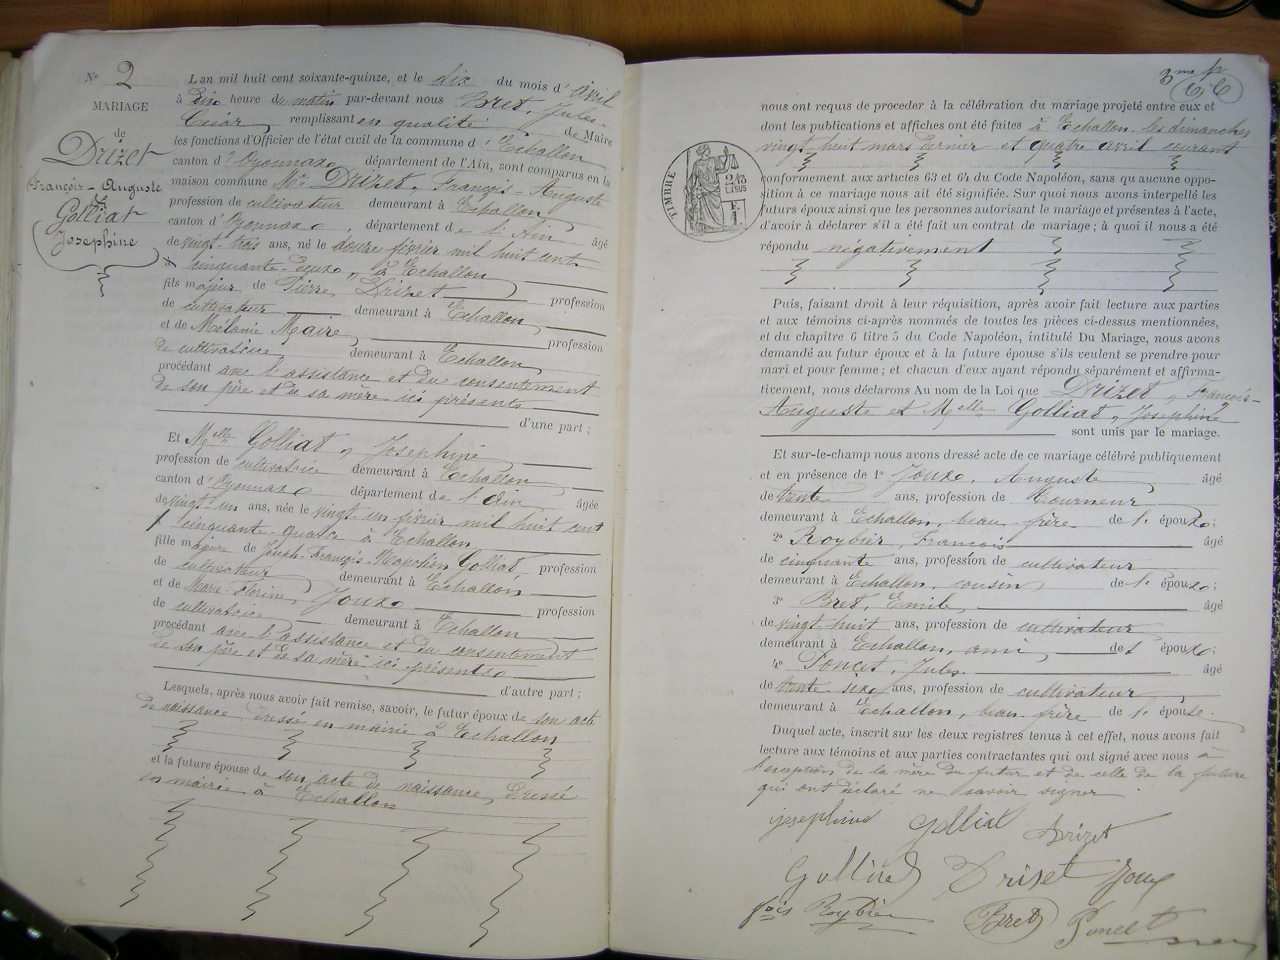 N° 2
MARIAGE
de
Drizet
François-Auguste
&
Golliat
Josephine
L'an mil huit cent soixante-quinze, et le dix du mois d'avril
à dix heure de matin par-devant nous Bret, Jules-
César, remplissant en qualité de Maire
les fonctions d'Officier de l'état civil de la commune d'Echallon
canton d'Oyonnax, département de l'Ain, sont comparus en la
maison commune Mr Drizet, François-Auguste
profession de cultivateur demeurant à Echallon,
canton d'Oyonnax, département de l'Ain âgé
de vingt-trois ans, né le douze février mil huit cent
cinquante-deux, à Echallon
fils majeur de Pierre Drizet profession
de cultivateur demeurant à Echallon,
et de Mélanie Maire, profession
de cultivatrice demeurant à Echallon,
procédant avec l'assistance et du consentement
de son père et de sa mère ici présents
d'une part ;
Et Melle Golliat, Josephine
profession de cultivatrice demeurant à Echallon,
canton d'Oyonnax département de l'Ain âgée
de vingt-un ans, née le vingt-un février mil huit cent
cinquante-quatre à Echallon
fille majeure de Joseph-François-Napoléon Golliat, profession
de cultivateur demeurant à Echallon
et de Marie-Florine, Joux profession
de cultivatrice demeurant à Echallon
procédant avec l'assistance et du consentement
de son père et de sa mère ici présents
d'autre part ;
Lesquels, après nous avoir fait remise, savoir, le futur époux de son acte
de naissance, dressé en mairie à Echallon
et la future épouse de son acte de naissance, dressé
en mairie à Echallon
3me
TIMBRE
2/10
EN SUS
F.
1.
nous ont requis de proceder à la célébration du mariage projeté entre eux et
dont les publications et affiches ont été faites à Echallon les dimanches
vingt-huit mars dernier et quatre avril courant
conformement aux articles 63 et 64 du Code Napoléon, sans qu'aucune oppo-
sition à ce mariage nous ait été signifiée. Sur quoi nous avons interpellé les
futurs époux ainsi que les personnes autorisant le mariage et présentes à l'acte,
d'avoir à déclarer s'il a été fait un contrat de mariage ; à quoi il nous a été
répondu négativement
Puis, faisant droit à leur réquisition, après avoir fait lecture aux parties
et aux témoins ci-après nommés de toutes les pièces ci-dessus mentionnées,
et du chapitre 6 titre 5 du Code Napoléon, intitulé Du Mariage, nous avons
demandé au futur époux et à la future épouse s'ils veulent se prendre pour
mari et pour femme ; et chacun d'eux ayant répondu séparément et affirma-
tivement, nous déclarons Au nom de la Loi que Drizet, François-
Auguste et Melle Golliat, Josephine
sont unis par le mariage.
Et sur-le-champ nous avons dressé acte de ce mariage célébré publiquement
et en présence de 1° Joux, Auguste âgé
de trente ans, profession de Tourneur
demeurant à Echallon, beau-frère de l'époux ;
2° Roybier, François âgé
de cinquante ans, profession de cultivateur
demeurant à Echallon, cousin de l'époux ;
3° Bret, Emile, âgé
de vingt-huit ans, profession de cultivateur
demeurant à Echallon, ami, de l'époux ;
4° Poncet, Jules âgé
de trente-six ans, profession de cultivateur
demeurant à Echallon, beau-frère de l'épouse.
Duquel acte, inscrit sur les deux registres tenus à cet effet, nous avons fait
lecture aux témoins et aux parties contractantes qui ont signé avec nous à
l'exception de la mère du futur et de celle de la future
qui ont déclaré ne savoir signer
josephine Golliat Drizet
Golliat Drizet Joux
fois Roybier Bret Poncet